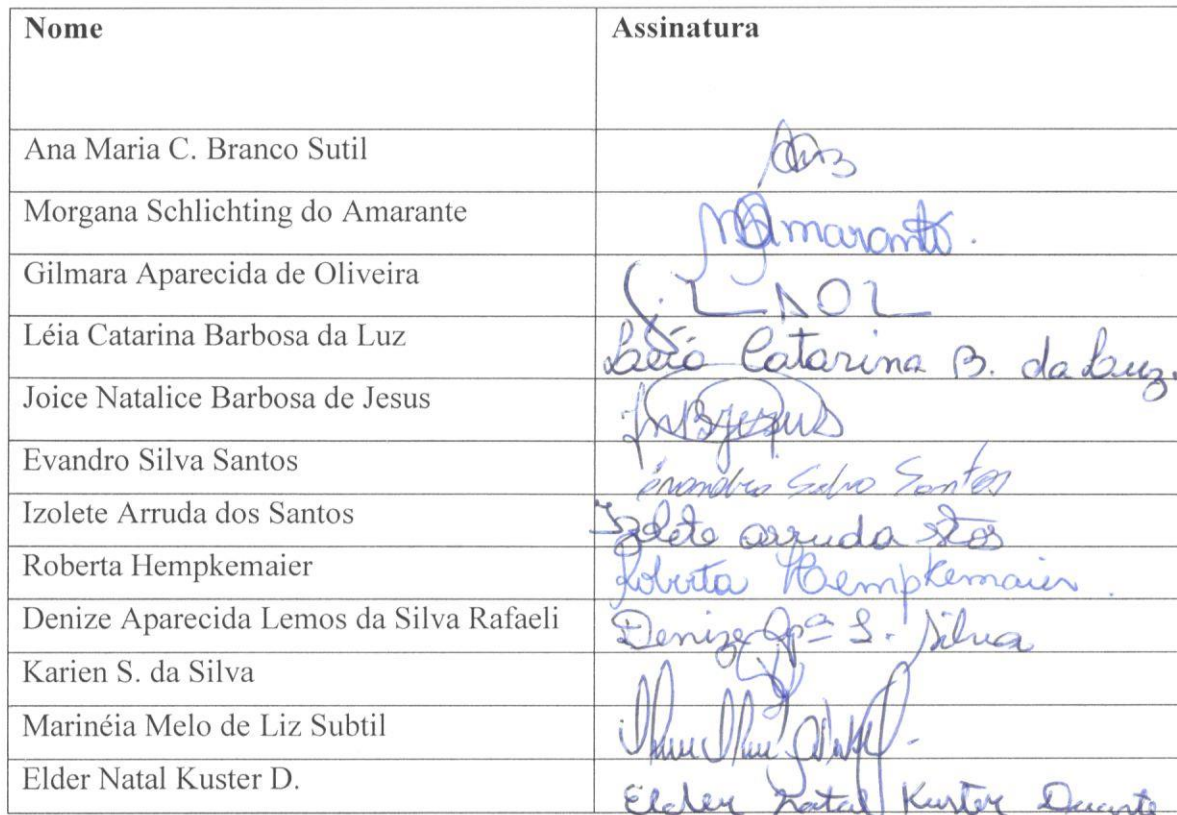 Nome Assinatura
Ana Maria C. Branco Sutil
Morgana Schlichting do Amarante Amarante.
Gilmara Aparecida de Oliveira
Léia Catarina Barbosa da Luz Léia Catarina B. da Luz.
Joice Natalice Barbosa de Jesus JNBJesus
Evandro Silva Santos Evandro Silva Santos
Izolete Arruda dos Santos Izolete arruda stos
Roberta Hempkemaier Roberta Hempkemaier.
Denize Aparecida Lemos da Silva Rafaeli Denize Apª L. Silva
Karien S. da Silva
Marinéia Melo de Liz Subtil
Elder Natal Kuster D. Elder Natal Kuster Duarte